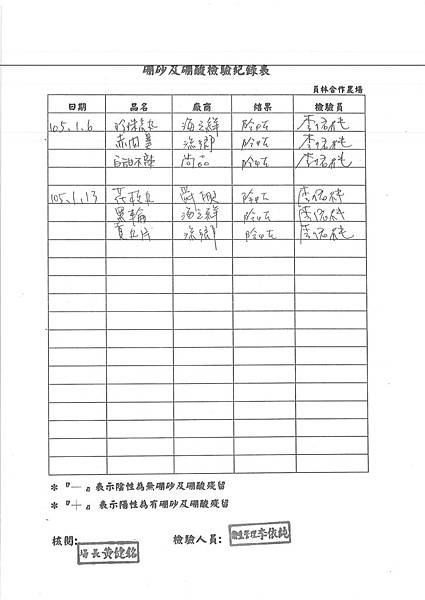 硼砂及硼酸檢驗紀錄表
員林合作農場
日期 品名 廠商 結果 檢驗員
105.1.6 珍珠丸 海之鮮 陰性 李依純
赤肉羹 添鄉 陰性 李依純
白甜不辣 尚品 陰性 李依純
105.1.13 丸 陰性 李依純
黑輪 海之鮮 陰性 李依純
片 添鄉 陰性 李依純
＊『－』表示陰性為無硼砂及硼酸殘留
＊『＋』表示陽性為有硼砂及硼酸殘留
核閱: 場長黃健銘
檢驗人員: 衛生管理李依純